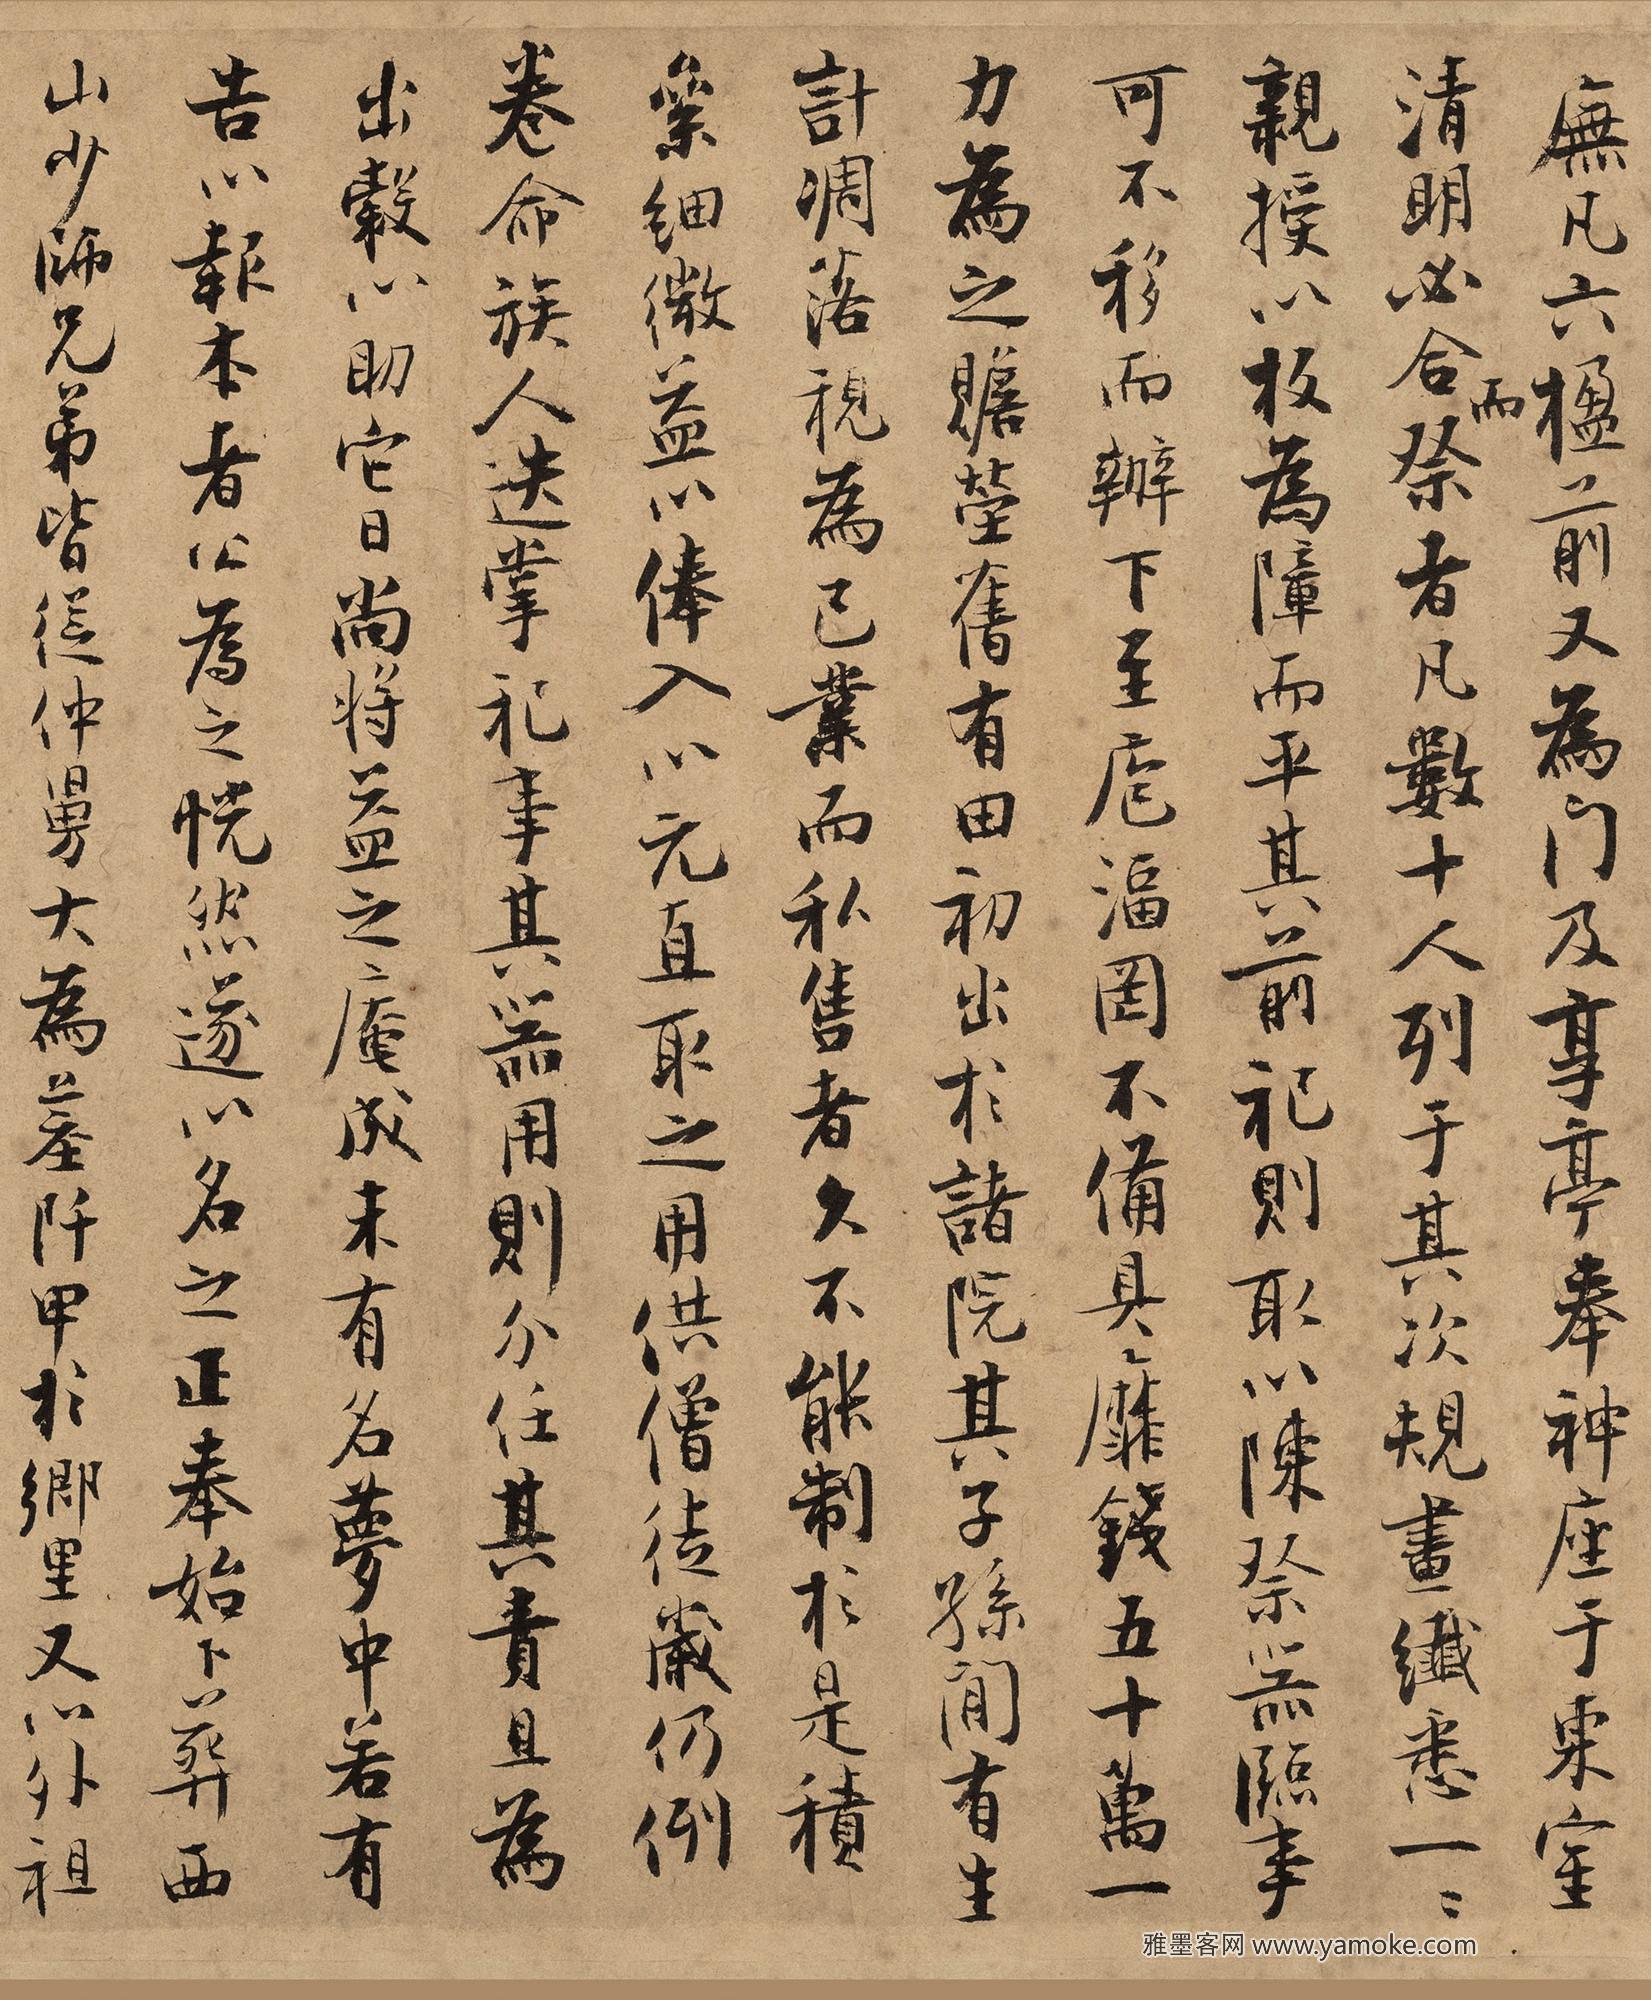 廡凡六楹前又為門及享亭奉神座于東室
清明必合而祭者凡數十人列于其次規畫纖悉一〻
親授以板為障而平其前祀則取以陳祭器臨事
可不移而辦下至庖湢罔不備具靡錢五十萬一
力為之贍塋舊有田初出於諸院其子孫間有生
計凋落視為己業而私售者久不能制於是積
絫細微益以俸入以元直取之用供僧徒歲仍例
卷命族人迭掌祀事其器用則分任其責且為
出穀以助它日尚將益之庵成未有名夢中若有
告以報本者公為之恍然遂以名之正奉始卜葬西
山少師兄弟皆從仲舅大為墓阡甲於鄉里又以外祖
雅墨客网 www.yamoke.com